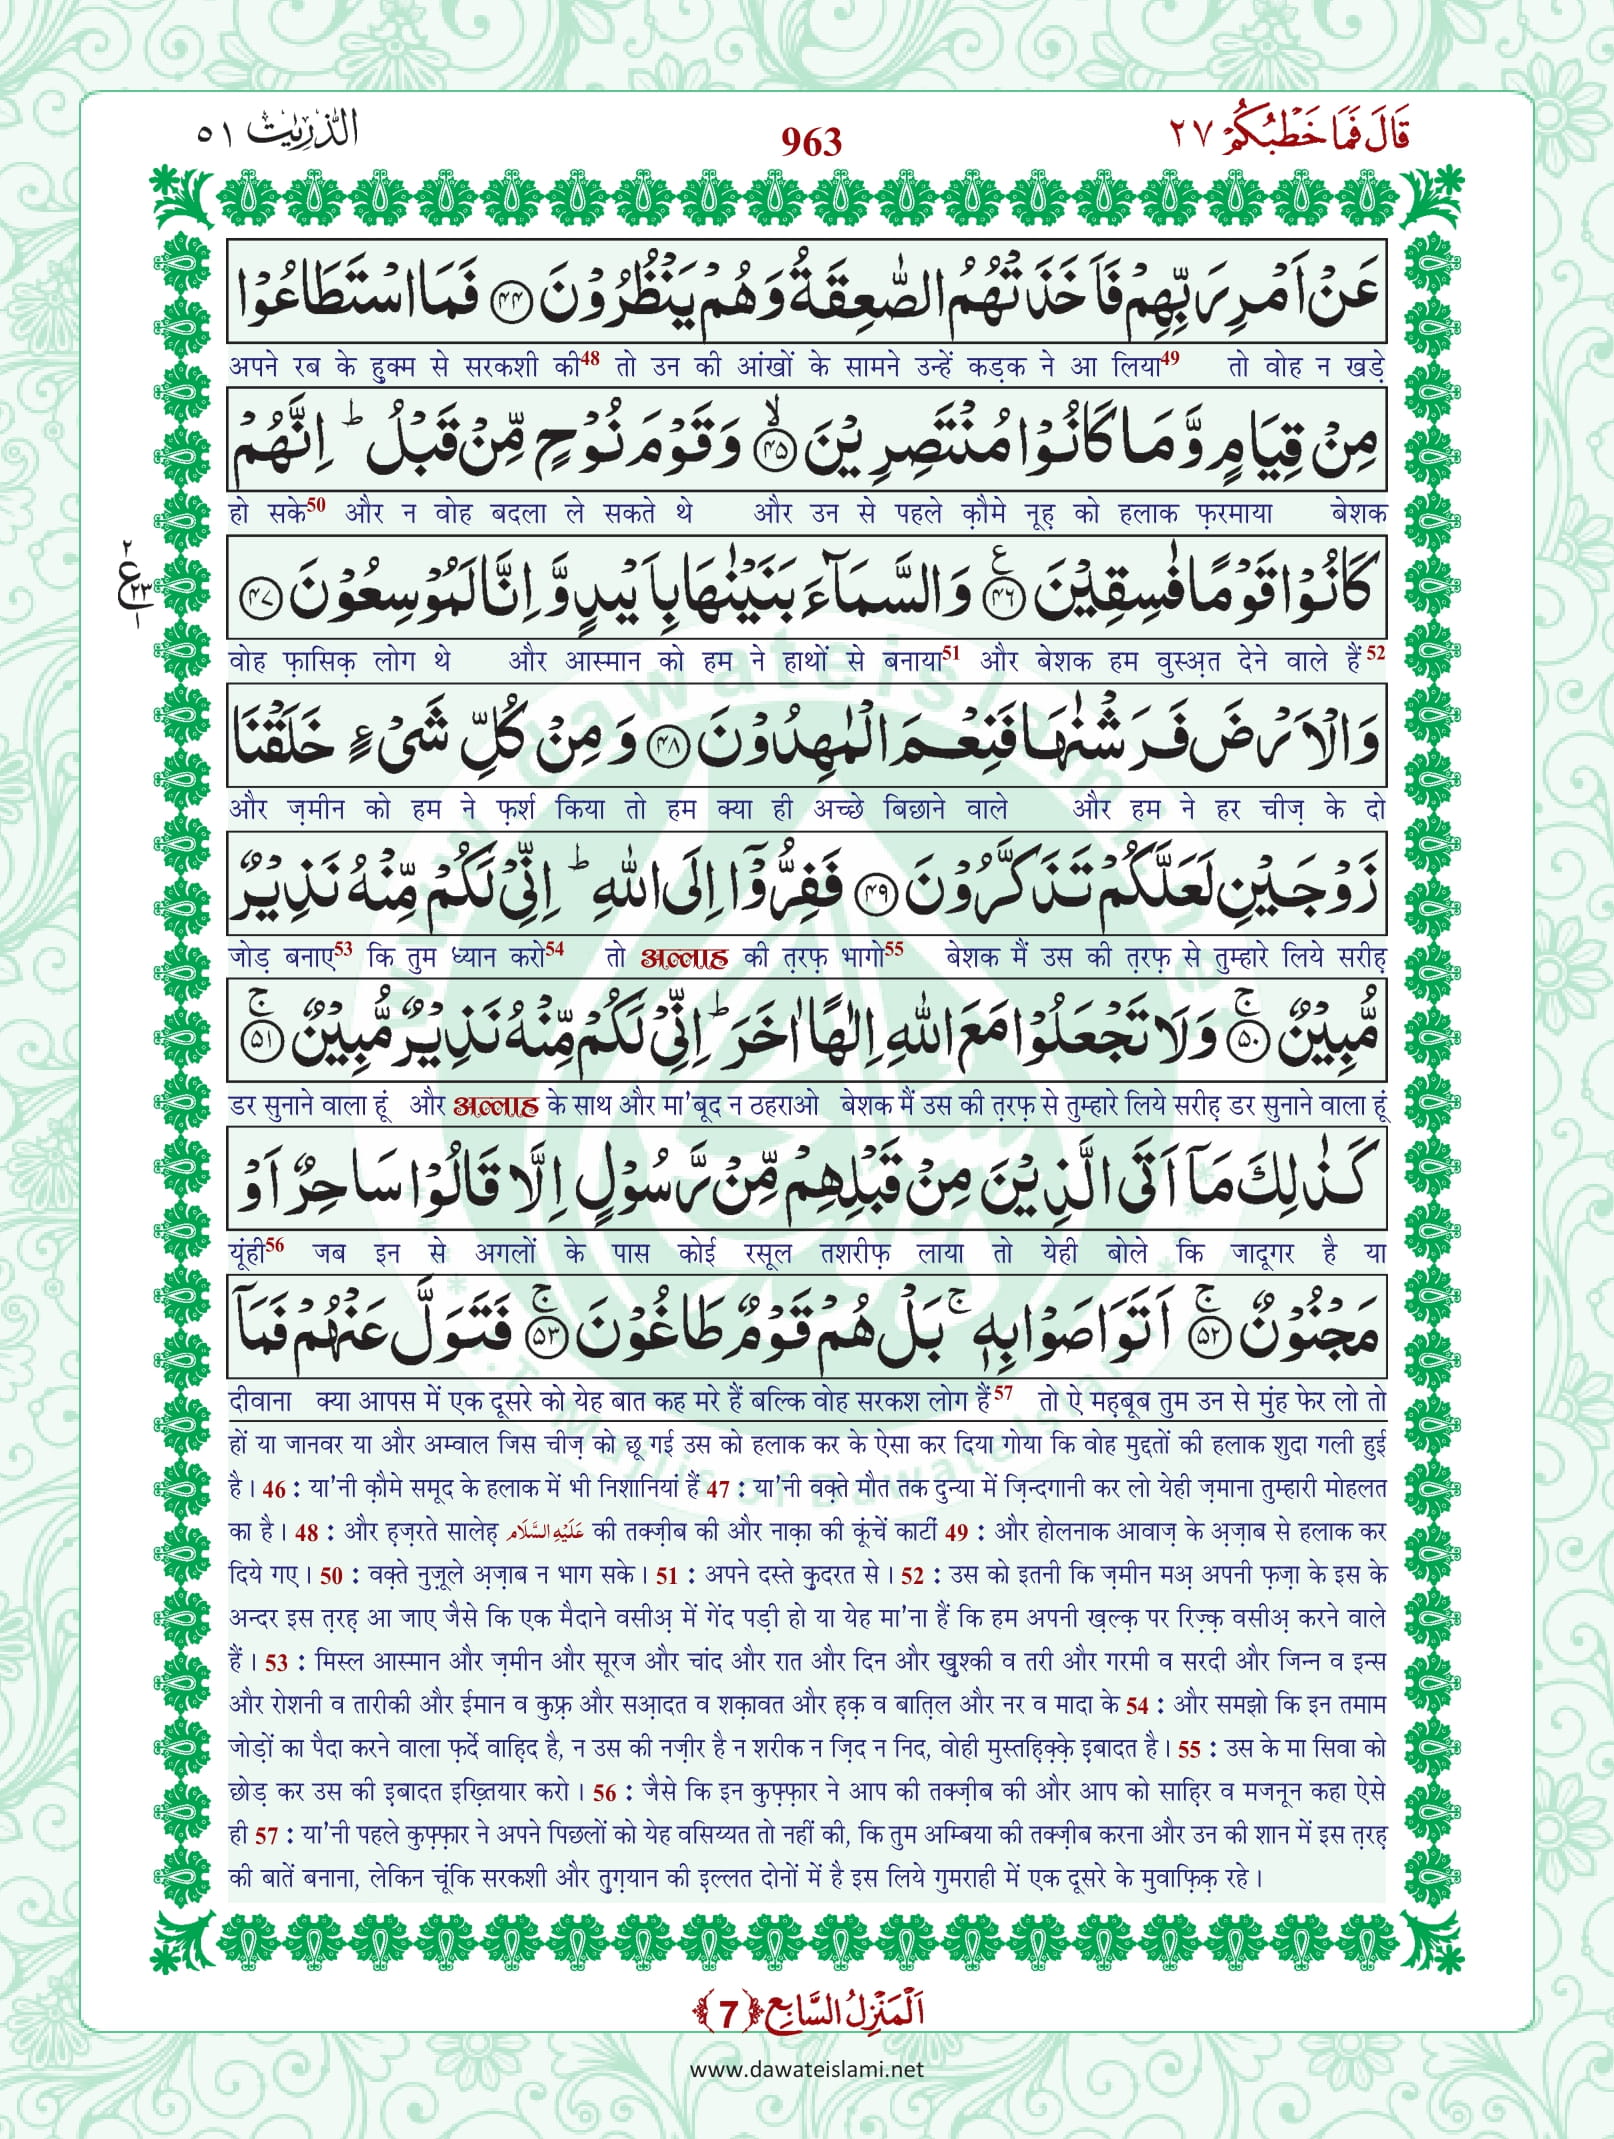 الذّٰرِیٰت ٥١
963
قَالَ فَمَا خَطْبُكُمْ ٢٧
عَنْ اَمْرِ رَبِّهِمْ فَاَخَذَتْهُمُ الصّٰعِقَةُ وَ هُمْ یَنْظُرُوْنَ ﴿۴۴﴾ فَمَا اسْتَطَاعُوْا
अपने रब के हुक्म से सरकशी की48 तो उन की आंखों के सामने उन्हें कड़क ने आ लिया49 तो वोह न खड़े
مِنْ قِیَامٍ وَّ مَا كَانُوْا مُنْتَصِرِیْنَ ﴿ۙ۴۵﴾ وَ قَوْمَ نُوْحٍ مِّنْ قَبْلُ ؕ اِنَّهُمْ
हो सके50 और न वोह बदला ले सकते थे और उन से पहले क़ौमे नूह़ को हलाक फ़रमाया बेशक
كَانُوْا قَوْمًا فٰسِقِیْنَ ﴿۴۶﴾ ع وَ السَّمَآءَ بَنَیْنٰهَا بِاَیْىدٍ وَّ اِنَّا لَمُوْسِعُوْنَ ﴿۴۷﴾
٢ ع ٢٣ ١
वोह फ़ासिक़ लोग थे और आस्मान को हम ने हाथों से बनाया51 और बेशक हम वुस्अ़त देने वाले हैं52
وَ الْاَرْضَ فَرَشْنٰهَا فَنِعْمَ الْمٰهِدُوْنَ ﴿۴۸﴾ وَ مِنْ كُلِّ شَیْءٍ خَلَقْنَا
और ज़मीन को हम ने फ़र्श किया तो हम क्या ही अच्छे बिछाने वाले और हम ने हर चीज़ के दो
زَوْجَیْنِ لَعَلَّكُمْ تَذَكَّرُوْنَ ﴿۴۹﴾ فَفِرُّوْۤا اِلَى اللّٰهِ ؕ اِنِّیْ لَكُمْ مِّنْهُ نَذِیْرٌ
जोड़ बनाए53 कि तुम ध्यान करो54 तो अल्लाह की त़रफ़ भागो55 बेशक मैं उस की त़रफ़ से तुम्हारे लिये सरीह़
مُّبِیْنٌ ﴿ۚ۵۰﴾ وَ لَا تَجْعَلُوْا مَعَ اللّٰهِ اِلٰهًا اٰخَرَ ؕ اِنِّیْ لَكُمْ مِّنْهُ نَذِیْرٌ مُّبِیْنٌ ﴿ۚ۵۱﴾
डर सुनाने वाला हूं और अल्लाह के साथ और मा'बूद न ठहराओ बेशक मैं उस की त़रफ़ से तुम्हारे लिये सरीह़ डर सुनाने वाला हूं
كَذٰلِكَ مَاۤ اَتَى الَّذِیْنَ مِنْ قَبْلِهِمْ مِّنْ رَّسُوْلٍ اِلَّا قَالُوْا سَاحِرٌ اَوْ
यूंही56 जब इन से अगलों के पास कोई रसूल तशरीफ़ लाया तो येही बोले कि जादूगर है या
مَجْنُوْنٌ ﴿ۚ۵۲﴾ اَتَوَاصَوْا بِهٖ ۚ بَلْ هُمْ قَوْمٌ طَاغُوْنَ ﴿ۚ۵۳﴾ فَتَوَلَّ عَنْهُمْ فَمَاۤ
दीवाना क्या आपस में एक दूसरे को येह बात कह मरे हैं बल्कि वोह सरकश लोग हैं57 तो ऐ मह़बूब तुम उन से मुंह फेर लो तो
हों या जानवर या और अम्वाल जिस चीज़ को छू गई उस को हलाक कर के ऐसा कर दिया गोया कि वोह मुद्दतों की हलाक शुदा गली हुई
है। 46 : या'नी क़ौमे समूद के हलाक में भी निशानियां हैं 47 : या'नी वक़्ते मौत तक दुन्या में ज़िन्दगानी कर लो येही ज़माना तुम्हारी मोहलत
का है। 48 : और ह़ज़रते सालेह़ عَلَيْهِ السَّلَام की तक्ज़ीब की और नाक़ा की कूंचें काटीं 49 : और होलनाक आवाज़ के अ़ज़ाब से हलाक कर
दिये गए। 50 : वक़्ते नुज़ूले अ़ज़ाब न भाग सके। 51 : अपने दस्ते क़ुदरत से। 52 : उस को इतनी कि ज़मीन मअ़ अपनी फ़ज़ा के इस के
अन्दर इस त़रह़ आ जाए जैसे कि एक मैदाने वसीअ़ में गेंद पड़ी हो या येह मा'ना हैं कि हम अपनी ख़ल्क़ पर रिज़्क़ वसीअ़ करने वाले
हैं। 53 : मिस्ल आस्मान और ज़मीन और सूरज और चांद और रात और दिन और ख़ुश्की व तरी और गरमी व सरदी और जिन्न व इन्स
और रोशनी व तारीकी और ईमान व कुफ़्र और सआ़दत व शक़ावत और ह़क़ व बात़िल और नर व मादा के 54 : और समझो कि इन तमाम
जोड़ों का पैदा करने वाला फ़र्दे वाह़िद है, न उस की नज़ीर है न शरीक न ज़िद न निद, वोही मुस्तह़िक़्क़े इबादत है। 55 : उस के मा सिवा को
छोड़ कर उस की इ़बादत इख़्तियार करो। 56 : जैसे कि इन कुफ़्फ़ार ने आप की तक्ज़ीब की और आप को साह़िर व मजनून कहा ऐसे
ही 57 : या'नी पहले कुफ़्फ़ार ने अपने पिछलों को येह वसिय्यत तो नहीं की, कि तुम अम्बिया की तक्ज़ीब करना और उन की शान में इस त़रह़
की बातें बनाना, लेकिन चूंकि सरकशी और तु़ग़यान की इ़ल्लत दोनों में है इस लिये गुमराही में एक दूसरे के मुवाफ़िक़ रहे।
اَلْمَنْزِلُ السَّابِع ﴿7﴾
www.dawateislami.net